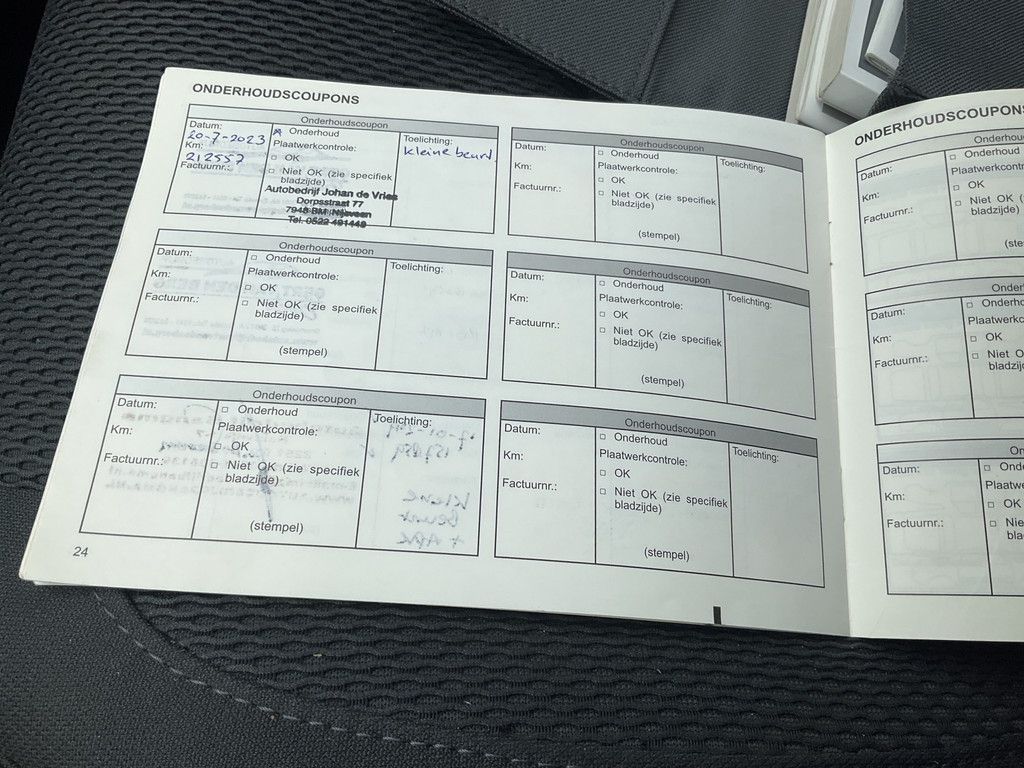 ONDERHOUDSCOUPONS
Onderhoudscoupon
Datum:
20-7-2023
Km:
212557
Factuurnr.:
Onderhoud
Plaatwerkcontrole:
OK
Niet OK (zie specifiek
bladzijde)
Autobedrijf Johan de Vries
Dorpsstraat 77
7948 BM Nijeveen
Tel. 0522 491449
Toelichting:
kleine beurt
Onderhoudscoupon
Datum:
Km:
Factuurnr.:
Onderhoud
Plaatwerkcontrole:
OK
Niet OK (zie specifiek
bladzijde)
(stempel)
Toelichting:
Onderhoudscoupon
Datum:
Km:
Factuurnr.:
Onderhoud
Plaatwerkcontrole:
OK
Niet OK (zie specifiek
bladzijde)
(stempel)
Toelichting:
Onderhoudscoupon
Datum:
Km:
Factuurnr.:
Onderhoud
Plaatwerkcontrole:
OK
Niet OK (zie specifiek
bladzijde)
(stempel)
Toelichting:
Onderhoudscoupon
Datum:
Km:
Factuurnr.:
Onderhoud
Plaatwerkcontrole:
OK
Niet OK (zie specifiek
bladzijde)
(stempel)
Toelichting:
Onderhoudscoupon
Datum:
Km:
Factuurnr.:
Onderhoud
Plaatwerkcontrole:
OK
Niet OK (zie specifiek
bladzijde)
(stempel)
Toelichting:
24
ONDERHOUDSCOUPONS
Onderhou
Datum:
Km:
Factuurnr.:
Onderhoud
Plaatwerkcontr
OK
Niet OK (
bladzijde)
(ste
Onder
Datum:
Km:
Factuurnr.:
Onderho
Plaatwerkc
OK
Niet O
bladzij
On
Datum:
Km:
Factuurnr.:
Onde
Plaatwe
OK
Nie
bla